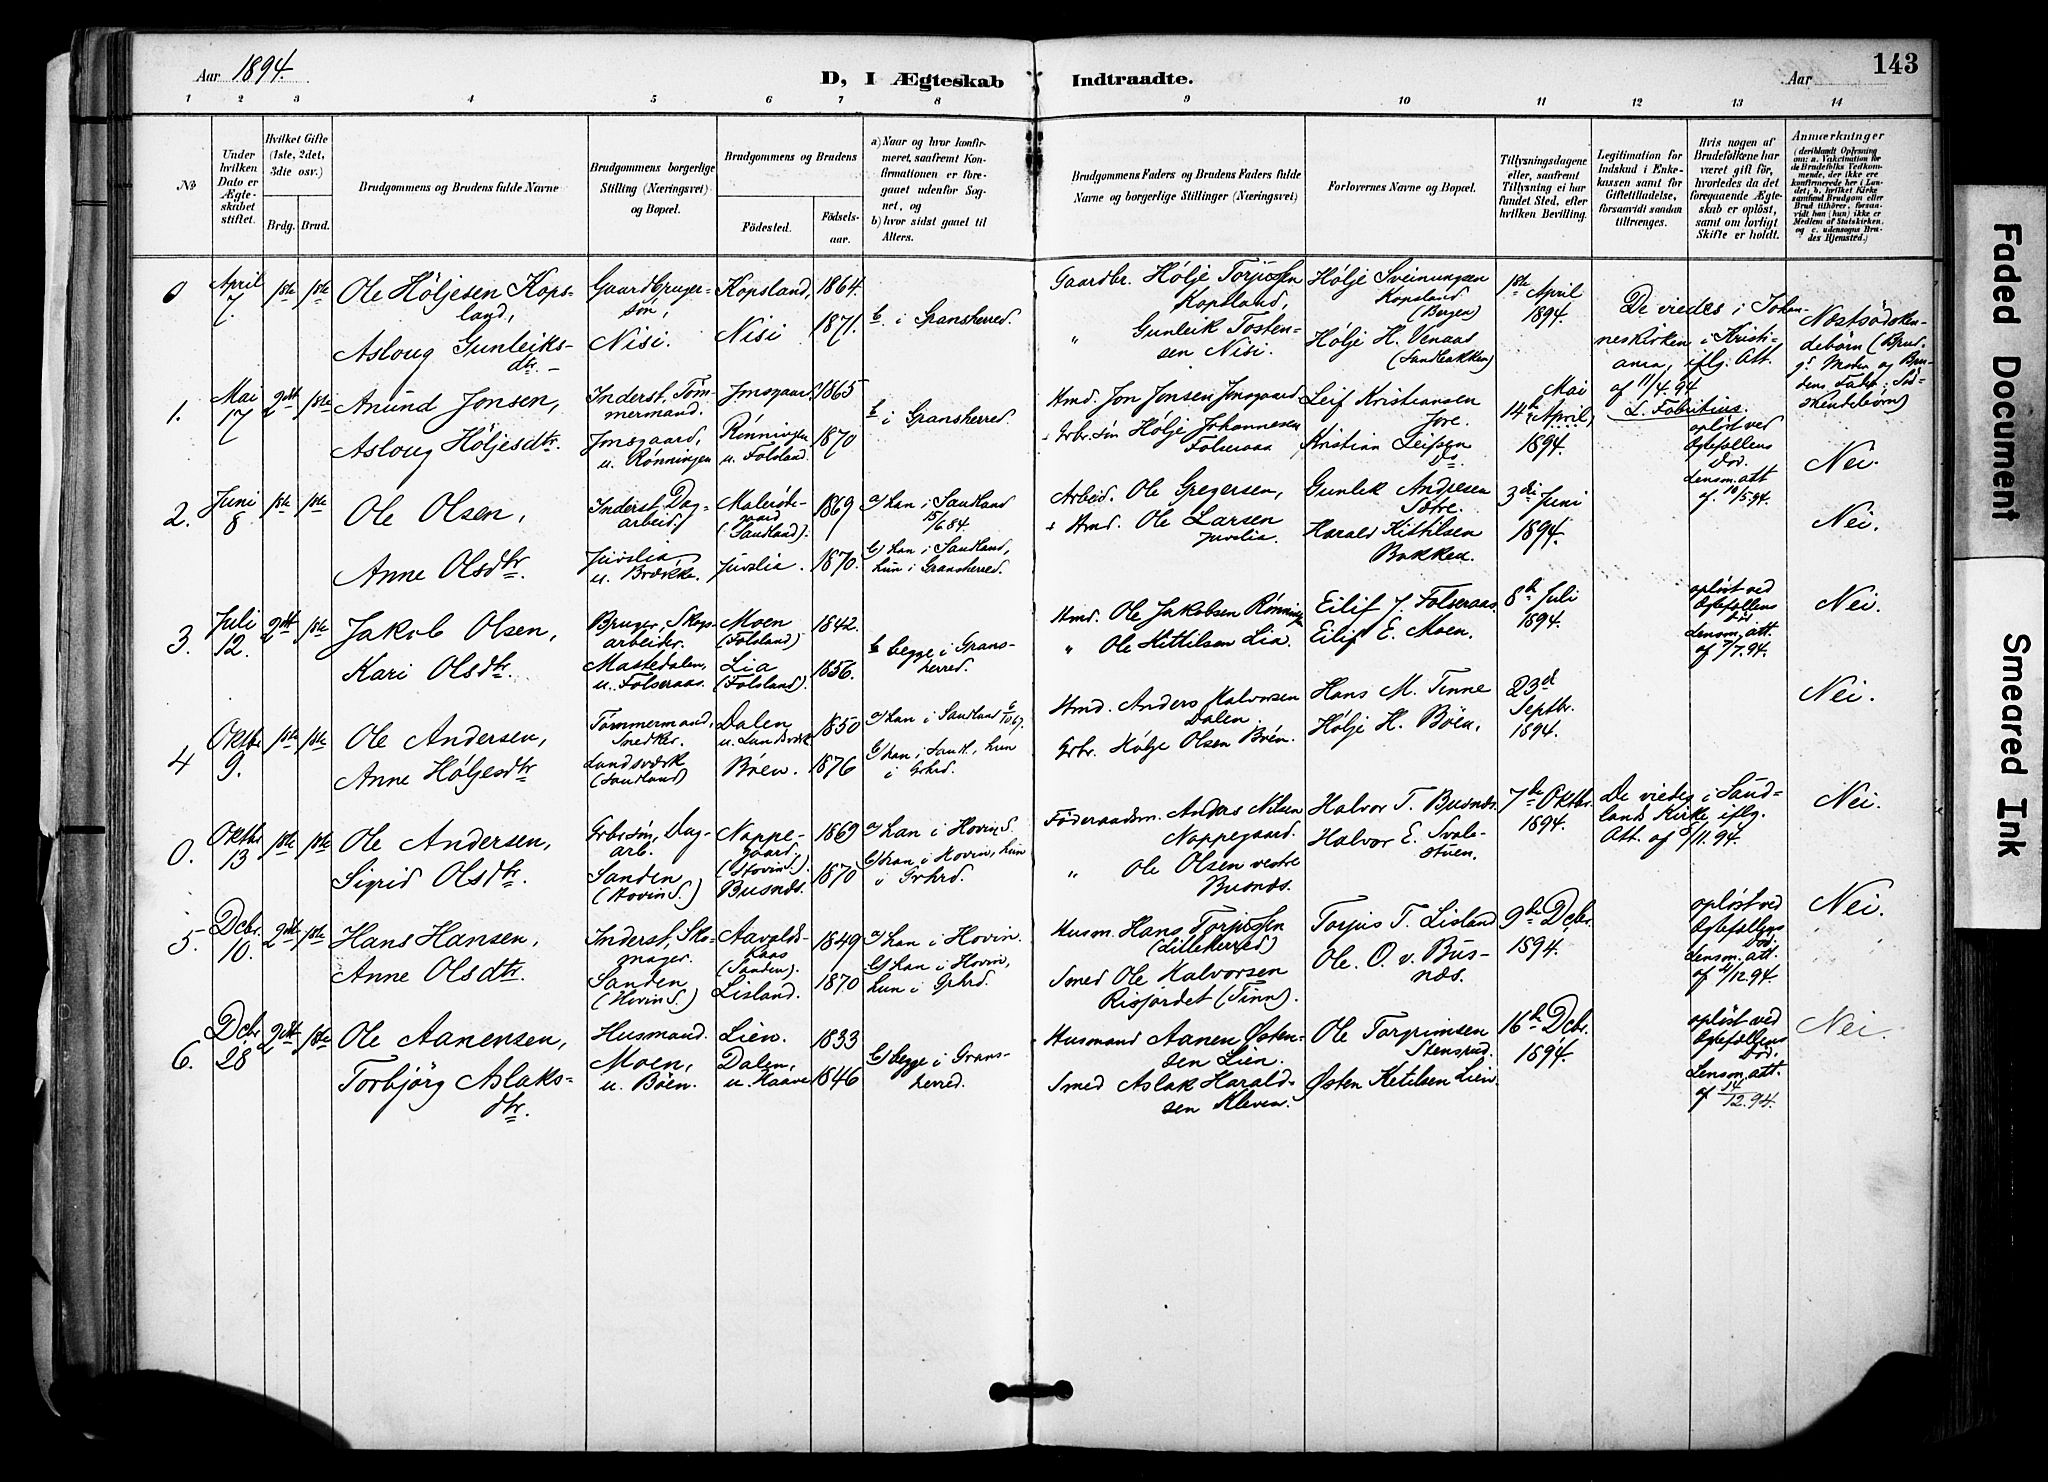 Aar 1894.
D, I Ægteskab Indtraadte.
Aar
143
1 2 3 4 5 6 7 8 9 10 11 12 13 14
No
Under hvilken Dato er Ægteskabet stiftet.
Hvilket Gifte (1ste, 2det, 3die osv.)
Brdg. Brud.
Brudgommens og Brudens fulde Navne
Brudgommens borgerlige Stilling (Næringsvei) og Bopæl.
Brudgommens og Brudens
Födested.
Födselsaar.
a) Naar og hvor konfirmeret, saafremt Konfirmationen er foregaaet udenför Sognet, og
b) hvor sidst gaaet til Alters.
Brudgommens Faders og Brudens Faders fulde Navne og borgerlige Stillinger (Næringsvei)
Forlovernes Navne og Bopæl.
Tillysningsdagene eller, saafremt Tillysning ei har fundet Sted, efter hvilken Bevilling.
Legitimation for Indskud i Enkekassen samt for Giftetilladelse, forsaavidt saadan tiltrænges.
Hvis nogen af Brudefolkene har været gift för, hvorledes da det foregaaende Ægteskab er oplöst, samt om lovligt Skifte er holdt.
Anmærkninger
0 April 7. 1ste 1ste
Ole Höljesen Kopsland,
Asloug Gunleiksdtr. –
Gaardbrugersön,
Nisi.
Kopsland, 1864.
Nisi 1871.
b. i Gransherred.
Gaardbr. Hölje Torjussen Kopsland,
" Gunleik Tostensen Nisi.
Hölje Sveinungsen Kopsland (Bergen)
Hölje H. Venaas (Sandbakken)
1ste April 1894.
De viedes i Johanneskirken i Kristiania, iflg. Att. af 11/4.94
L. Fabritius.
Næstsödskendebörn (Brudg.s Moder og Brudens Fader: Södskendebörn)
1. Mai 17 2det 1ste
Anund Jonsen,
Asloug Höljesdtr.
Inderst, Tömmermand.
Jmsgaard, u. Rönningen
Jmsgaard 1865
Rönningen u. Folsland. 1870
b i Gransherred.
Hmd. Jon Jonsen Jmsgaard
Grbr.sön Hölje Johannesen Folseraas
Leif Kristiansen Jore.
Kristian Leifsen Do.
Mai 14de (April) 1894.
oplöst ved Ægtefællens Död. Lensm. att. af 10/5.94.
Nei.
2. Juni 8 1ste 1ste
Ole Olsen,
Anne Olsdtr.
Inderst, Dagarbeid.
Juvslia u. Brække.
(Saudland). 1869
Juvslia. 1870.
a) han i Saudland 15/6.84.
b) han i Saudland, hun i Gransherred.
Arbeid. Ole Gregersen,
Hmd. Ole Larsen Juvslia.
Gunlik Andresen Sætre.
Harald Kittilsen Bakken.
3die Juni 1894.
Nei.
3. Juli 12. 2det 1ste
Jakob Olsen,
Kari Olsdtr.
Bruger, Skogsarbeider.
Mastedalen, u. Folseraas.
Moen (Folsland) 1842.
Lia (Folsland). 1856.
b begge i Gransherred.
Hmd. Ole Jakobsen Rönning
" Ole Kittilsen Lia.
Eilif J. Folseraas.
Eilif E. Moen.
8de Juli 1894.
oplöst ved Ægtefællens Död. Lensm. att. af 7/7.94.
Nei.
4 Oktbr. 9. 1ste 1ste
Ole Andersen,
Anne Höljesdtr
Tömmermand, Snedker.
Landsværk (Saudland)
Dalen u. Landsværk 1850
Böen. 1876
a) han i Saudland 6/10 67.
b) han i Saudl., hun i Grhrd.
Hmd. Anders Halvorsen Dalen.
Grbr. Hölje Olsen Böen.
Hans M. Tinne
Hölje H. Böen.
23de Septbr. 1894.
Nei.
0. Oktbr 13 1ste 1ste
Ole Andersen,
Sigrid Olsdtr.
Grbr.sön, Dagarb.
Sanden (Hovin S.)
Noppegaard. (Hovin S.) 1869
Busnæs. 1870
a) han i Hovin S.
b) han i Hovin, hun i Grhrd.
Föderaadsm. Anders Nilsen Noppegaard.
" Ole Olsen vestre Busnæs.
Halvor T. Busnæs.
Halvor E. Svalestuen.
7de Oktbr. 1894.
De viedes i Saudlands Kirke, iflg. Att. af 5/11.94.
Nei.
5. Dcbr. 10. 2det 1ste
Hans Hansen,
Anne Olsdtr.
Inderst, Skomager.
Sanden (Hovin S.)
(Sanden). 1849
Lisland. 1870
a) han i Hovin.
b) han i Hovin, hun i Grhrd.
Husm. Hans Torjussen (Lilleherred)
Smed Ole Halvorsen Risjordet (Tinn).
Torjus T. Lisland
Ole. O. v. Busnæs.
9de Dcbr. 1894.
oplöst ved Ægtefællens Död. Lensm. att. af 4/12.94.
Nei.
6. Dcbr 28 2det 1ste
Ole Aanensen,
Torbjörg Aslaksdtr.
Husmand.
Moen, u. Böen.
Lien. 1833
Dalen, u. Haave 1846
b) begge i Gransherred.
Husmand Aanen Östensen Lien.
Smed Aslak Haraldsen Kleven.
Ole Torgrimsen Stensrud.
Østen Ketilsen Lien.
16de Dcbr. 1894.
oplöst ved Ægtefællens Död. Lensm. att. af 14/12.94.
Nei.
Faded Document
Smeared Ink